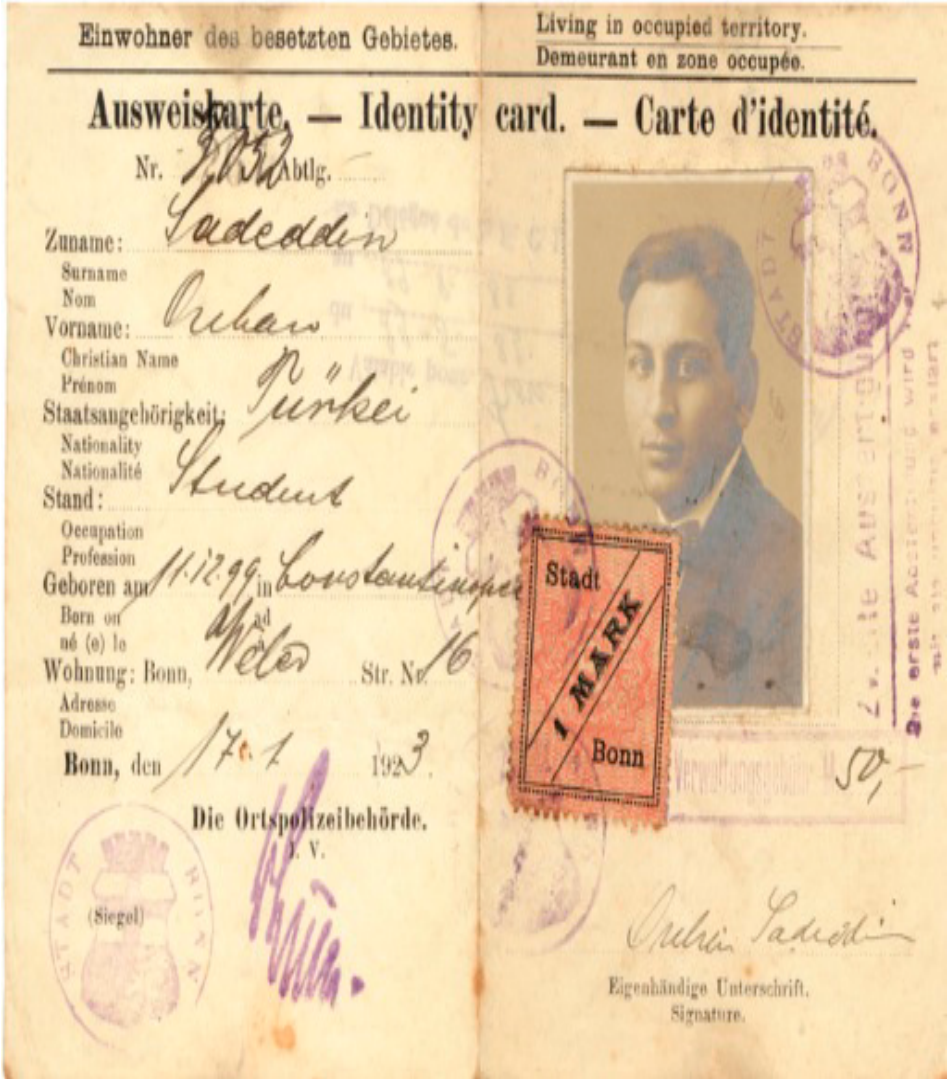 Einwohner des besetzten Gebietes.
Living in occupied territory.
Demeurant en zone occupée.
Ausweiskarte. — Identity card. — Carte d'identité.
Nr. Abtlg.
Zuname: Sadeddin
Surname
Nom
Vorname: Orchan
Christian Name
Prénom
Staatsangehörigkeit: Türkei
Nationality
Nationalité
Stand: Student
Occupation
Profession
Geboren am 11.12.99 in Constantinopel
Born on ad
né (e) le
Wohnung: Bonn, Weber Str. Nr. 16
Adresse
Domicile
Bonn, den 17.1 1923
Die Ortspolizeibehörde.
I. V.
(Siegel)
STADT BONN
STADT BONN
Stadt
1 MARK
Bonn
Zweite Ausfertigung
Die erste Ausfertigung wird
Verwaltungsgebühr M 50,-
Orchan Sadeddin
Eigenhändige Unterschrift.
Signature.